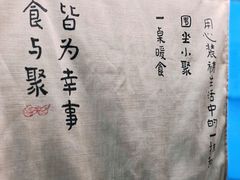 用心装裱生活中的一
圍坐小聚
一桌暖食
皆为幸事
食与聚